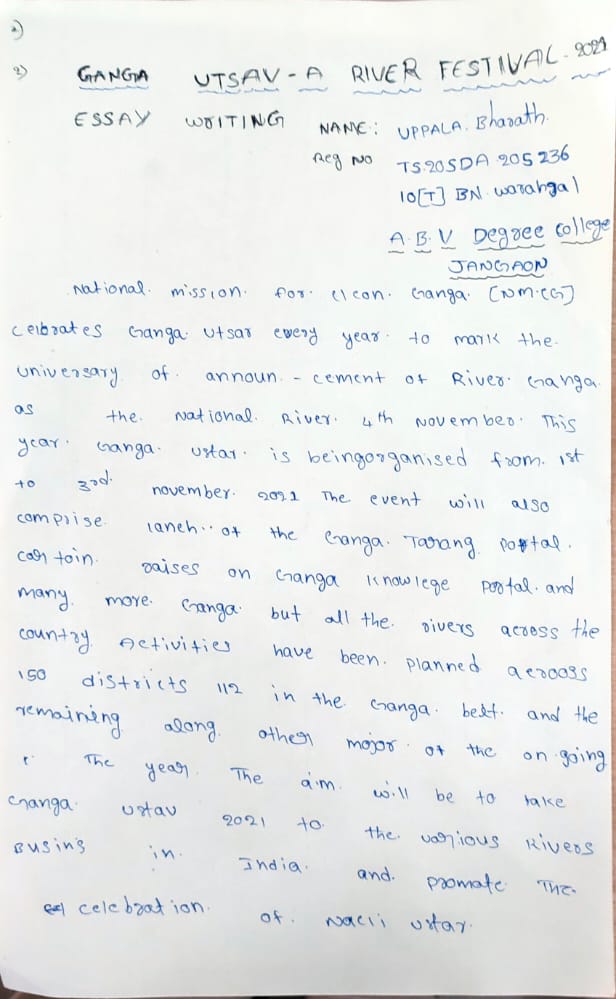 2)
GANGA UTSAV - A RIVER FESTIVAL - 2021
ESSAY WRITING NAME: UPPALA. Bharath.
Reg NO TS20SDA 205 236
10[T] BN warangal
A.B.V Degree college
JANGAON
National. mission. for. clean. Ganga. [NM.CG]
celbrates Ganga. utsav every year. to mark the.
universary. of. announ. - cement of River. Ganga.
as the. National. River. 4th November. This
year. Ganga. ustav. is beingorganised from. 1st
to 3rd. november. 2021 The event will also
comprise. lanch.. of the Ganga. Tarang. portal.
cartoin. raises on Ganga Knowlege portal. and
many. more. Ganga. but all the. rivers across the
country. Activities have been. planned aerooss
150 districts 112 in the. Ganga. belt. and the
remaining along. other major. of the on.going
The year. The aim. will be to take
Ganga. ustav 2021 to. the. various Rivers
Busins in. India. and. promate The.
celebration. of. Nacli ustav.